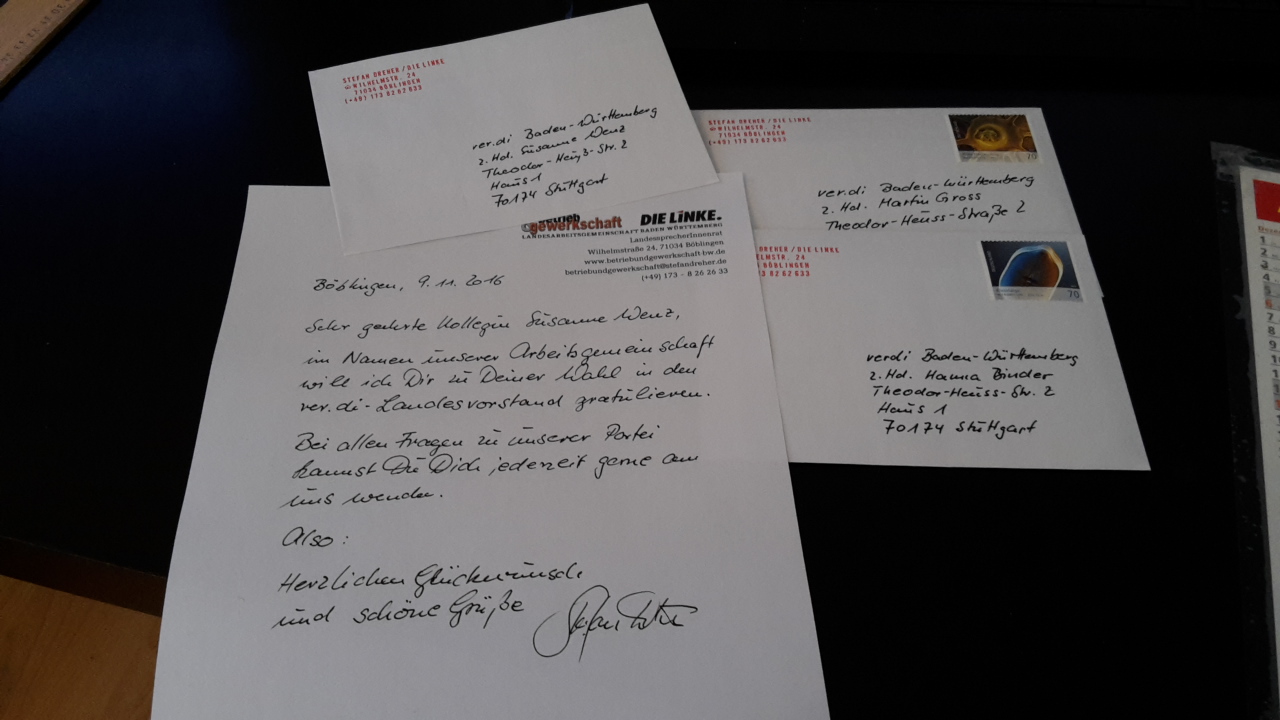 STEFAN DREHER / DIE LINKE
WILHELMSTR. 24
71034 BÖBLINGEN
(+49) 173 82 62 633
ver.di Baden-Württemberg
z. Hd. Susanne Wenz
Theodor-Heuß-Str. 2
Haus 1
70174 Stuttgart
STEFAN DREHER / DIE LINKE
WILHELMSTR. 24
71034 BÖBLINGEN
(+49) 173 82 62 633
70
ver.di Baden-Württemberg
z. Hd. Martin Gross
Theodor-Heuss-Straße 2
DREHER / DIE LINKE
HELMSTR. 24
BÖBLINGEN
3 82 62 633
70
ver.di Baden-Württemberg
z. Hd. Hanna Binder
Theodor-Heuss-Str. 2
Haus 1
70174 Stuttgart
betrieb
gewerkschaft DIE LINKE.
LANDESARBEITSGEMEINSCHAFT BADEN WÜRTTEMBERG
LandessprecherInnenrat
Wilhelmstraße 24, 71034 Böblingen
www.betriebundgewerkschaft-bw.de
betriebundgewerkschaft@stefandreher.de
(+49) 173 - 8 26 26 33
Böblingen, 9.11.2016
Sehr geehrte Kollegin Susanne Wenz,
im Namen unserer Arbeitsgemeinschaft
will ich Dir zu Deiner Wahl in den
ver.di-Landesvorstand gratulieren.
Bei allen Fragen zu unserer Partei
kannst Du Dich jederzeit gerne an
uns wenden.
Also:
Herzlichen Glückwunsch
und schöne Grüße